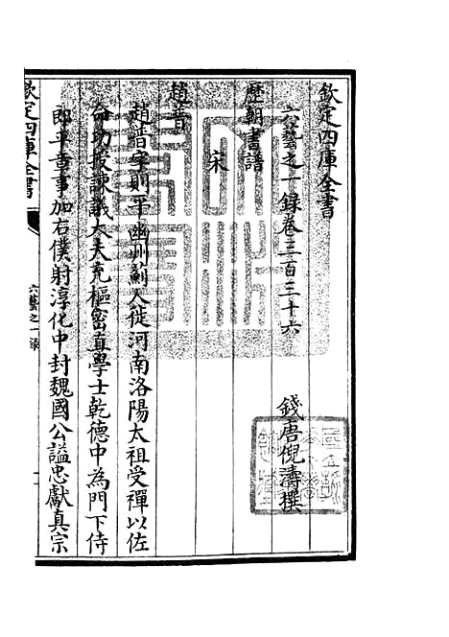 欽定四庫全書
六藝之一録卷三百三十六
錢唐倪濤撰
歷朝書譜
宋
趙普
趙普字則平幽州薊人徙河南洛陽太祖受禪以佐
命功授諫議大夫充樞密直學士乾德中為門下侍
郎平章事加右僕射淳化中封魏國公謚忠獻真宗
欽定四庫全書
六藝之一録